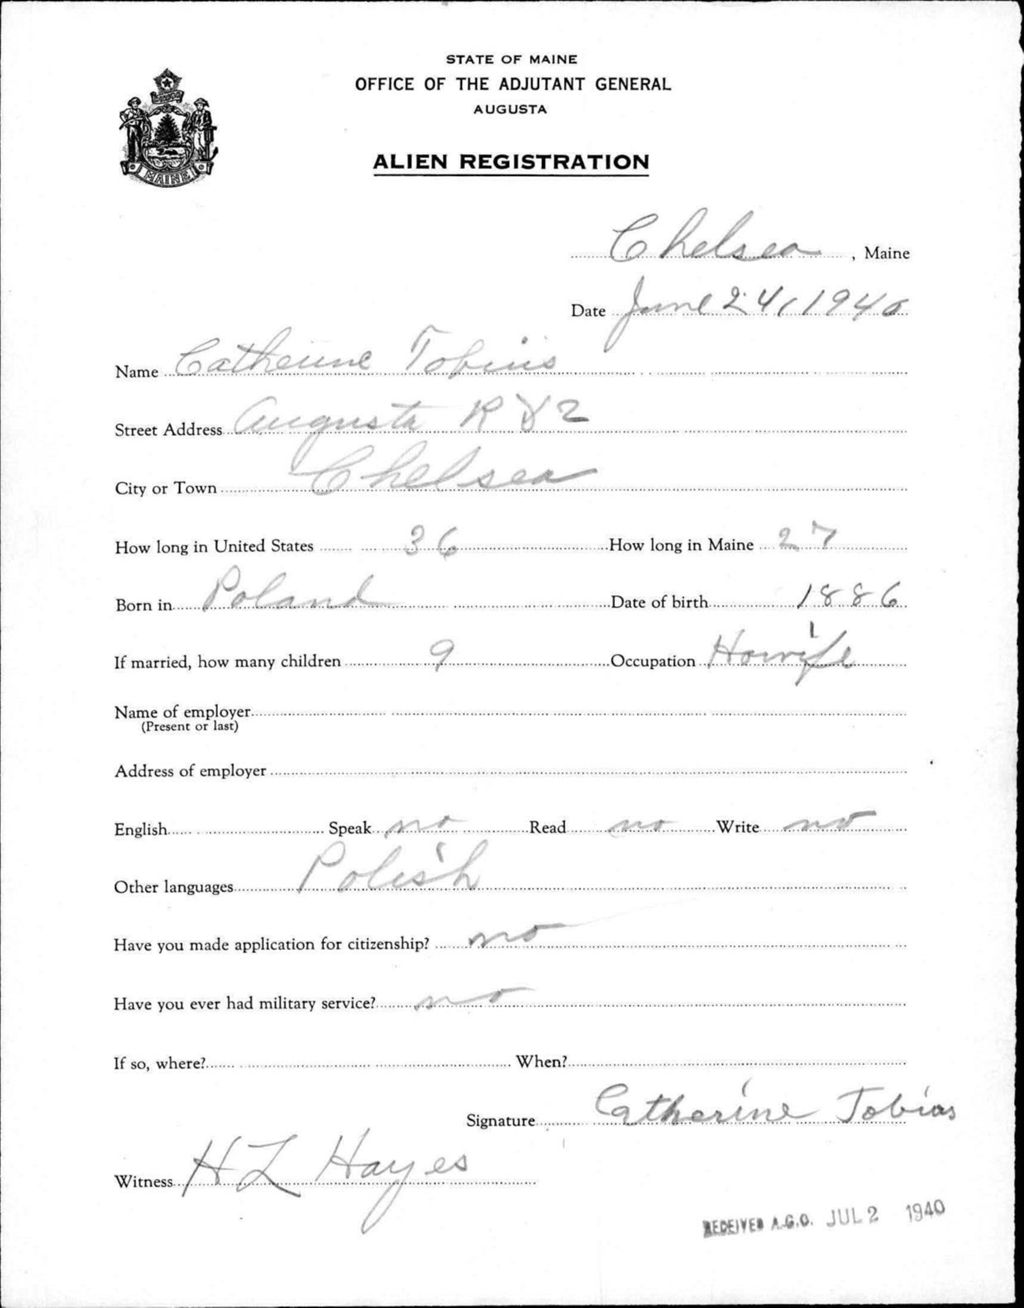 STATE OF MAINE
OFFICE OF THE ADJUTANT GENERAL
AUGUSTA
MAINE
ALIEN REGISTRATION
Chelsea, Maine
Date June 24, 1940
Name Catherine Tobius
Street Address Augusta R D 2
City or Town Chelsea
How long in United States 36 How long in Maine 27
Born in Poland Date of birth 1886
If married, how many children 9 Occupation Howife
Name of employer
(Present or last)
Address of employer
English Speak no Read no Write no
Other languages Polish
Have you made application for citizenship? no
Have you ever had military service? no
If so, where? When?
Signature Catherine Tobias
Witness H L Hayes
RECEIVED A.G.O. JUL 2 1940